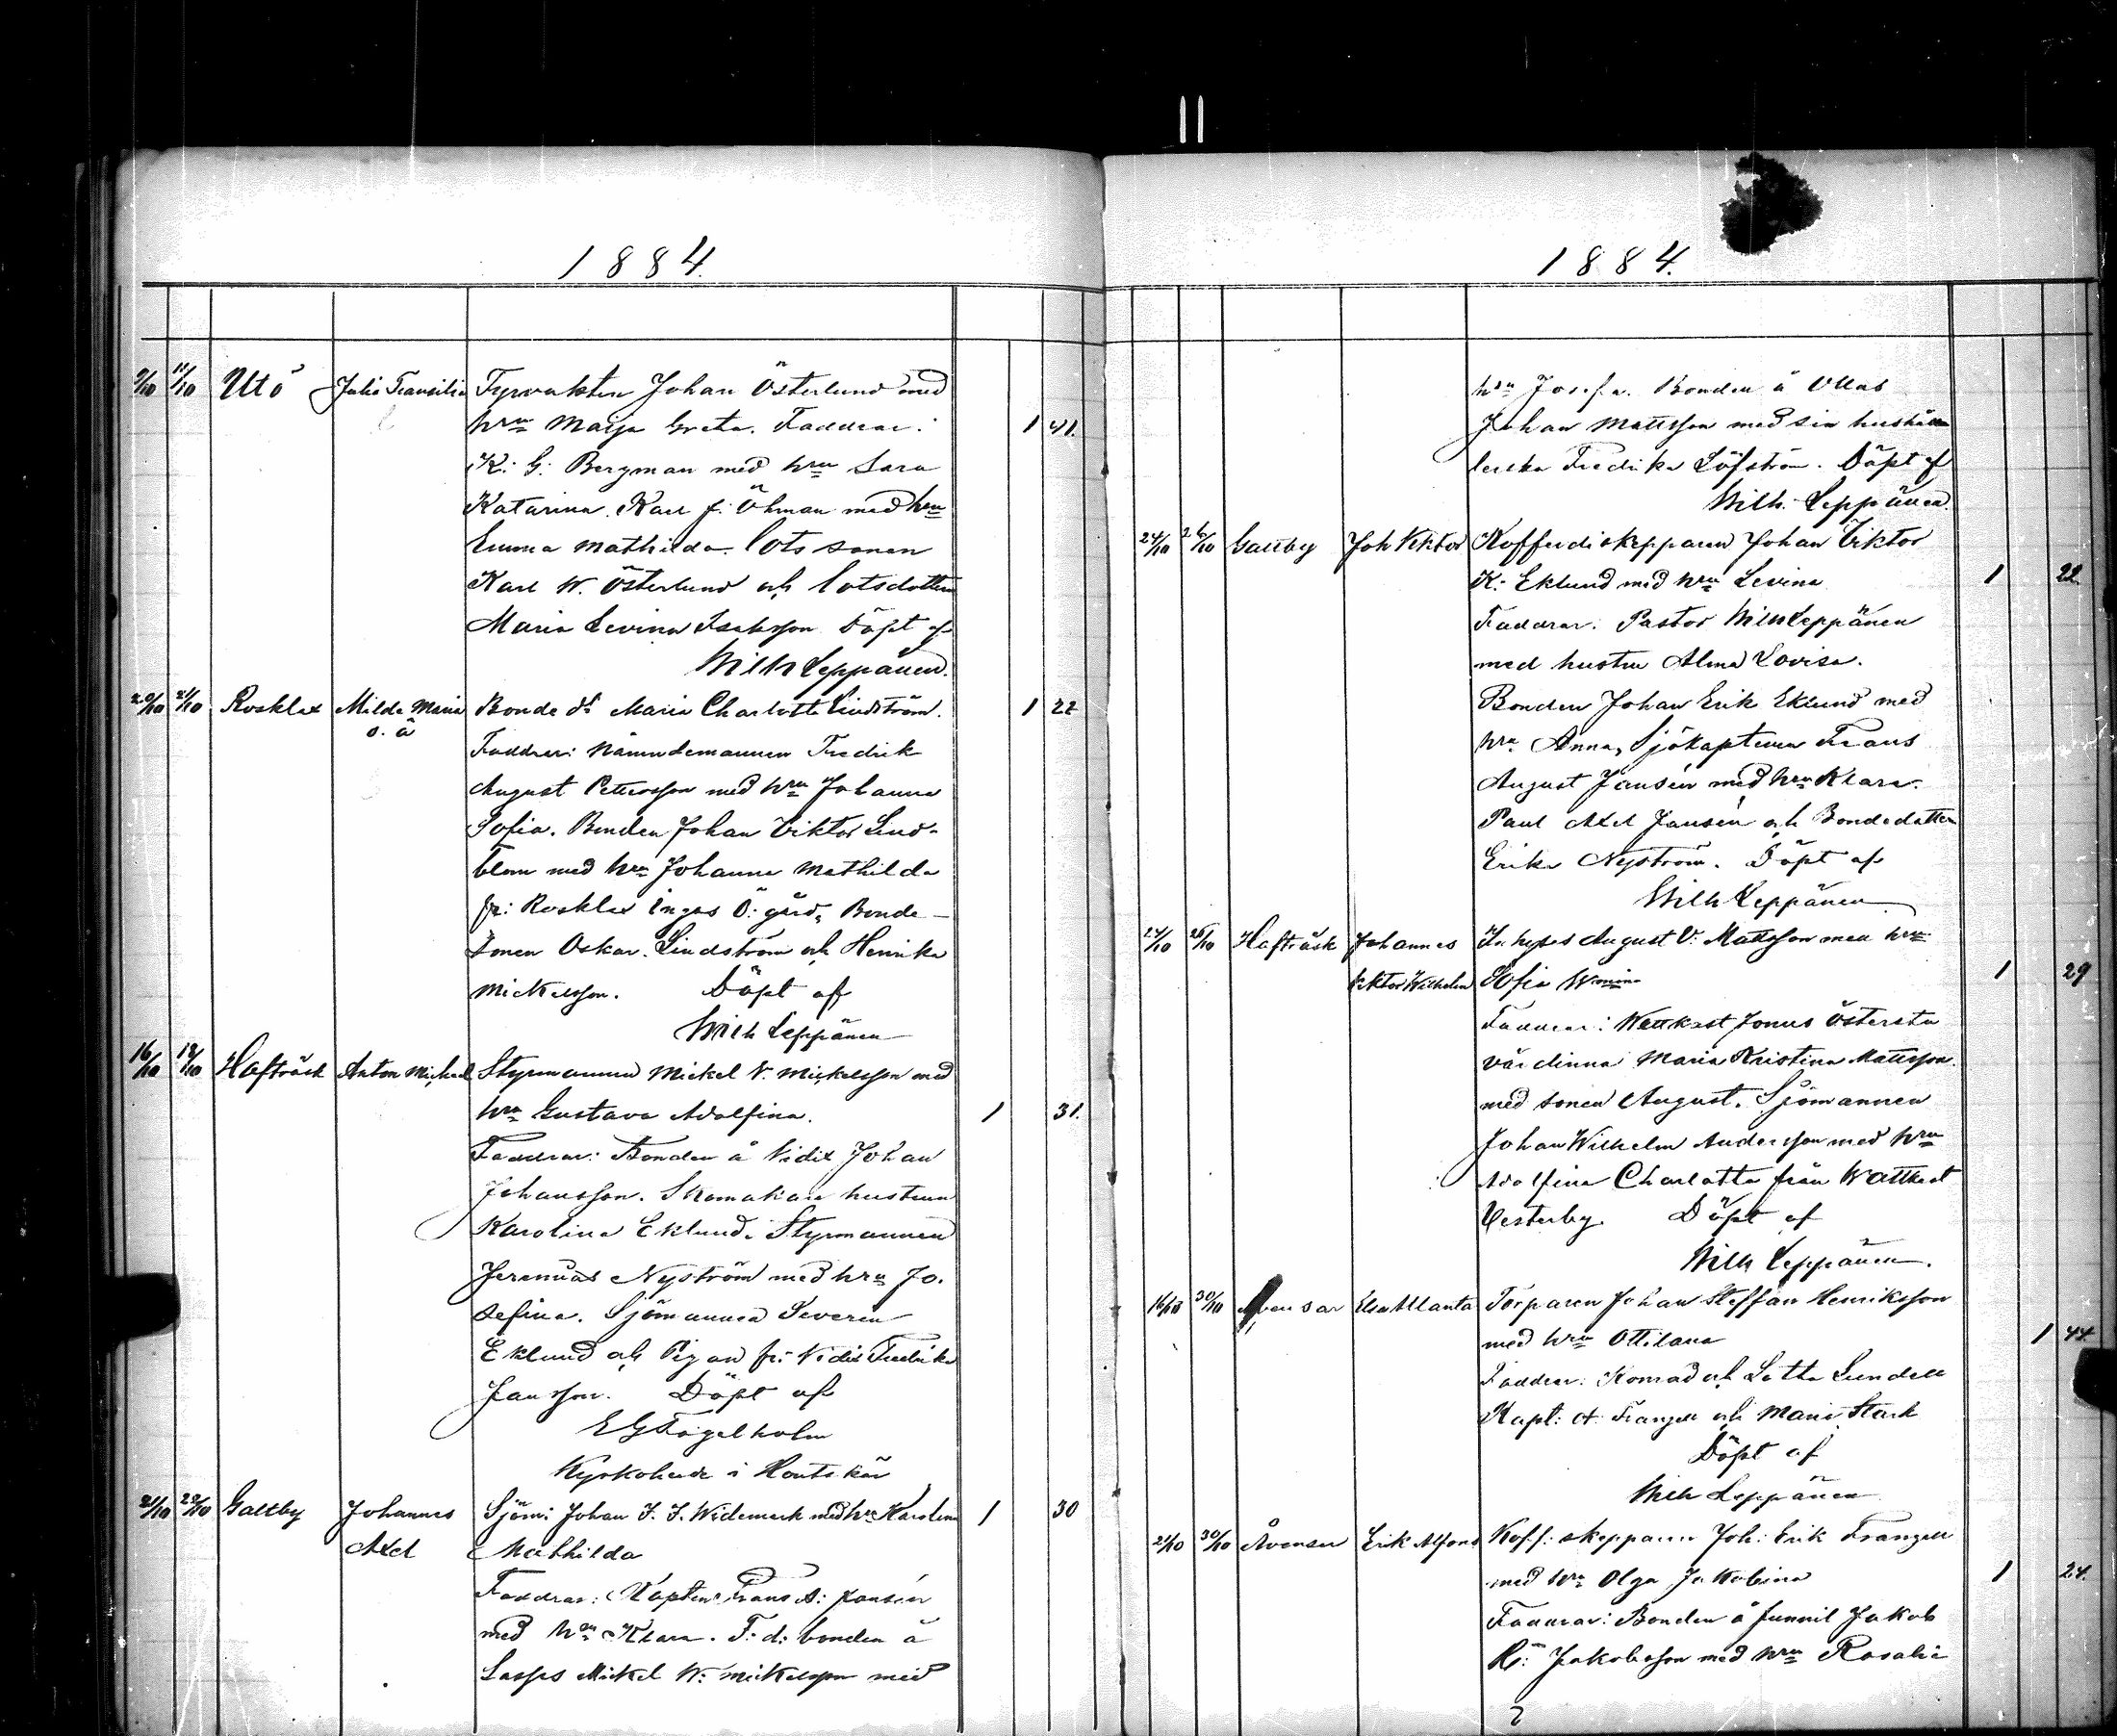 1884.
9/10 11/10 Utö Julia Fransilia Fyrvakten Johan Österlund med
hru Maija Greta. Faddrar: 1 41.
K: G: Bergman med hru Sara
Katarina. Karl f. Öhman med hru
Emma Mathilda. Lotssonen
Karl W. Österlund och lotsdottern
Maria Levina Isaksson Döpt af
Wilh Leppänen.
20/10 21/10 Rosklax Milda Maria Bonde dr Maria Charlotta Lindström. 1 22
o. ä
Faddrar: Nämndemannen Fredrik
August Petersson med hru Johanna
Sofia. Bonden Johan Viktor Lind-
blom med hru Johanna Mathilda
fr: Rosklax Ingas Ö: gård, Bonde-
sonen Oskar Lindström och Henrika
Mickelsson. Döpt af
Wilh Leppänen
16/10 18/10 Hafträsk Anton Michael Styrmannen Mickel V. Mickelsson med
hru Gustava Adolfina. 1 31.
Faddrar: Bonden å Nidix Johan
Johansson. Skomakare hustrun
Karolina Eklund. Styrmannen
Jeremias Nyström med hru Jo-
sefina. Sjömannen Severin
Eklund och Pigan fr: Nidix Fredrika
Jansson. Döpt af
EGFogelholm
Kyrkoherde i Houtskär
21/10 22/10 Galtby Johannes Sjöm: Johan F. F. Widemark med hru Karolina 1 30
Axel Mathilda
Faddrar: Kapten Frans A: Jansén
med hru Klara. F: d: bonden å
Lasses Mickel W: Mickelsson med
1884.
hru Josefa. Bonden å Ollas
Johan Mattsson med sin hushål
lerska Fredrika Löfström. Döpt af
Wilh. Leppänen.
24/10 26/10 Galtby Joh Viktor Kofferdiskepparen Johan Viktor
K: Eklund med hru Levina 1 22
Faddrar: Pastor Wilh Leppänen
med hustru Alma Lovisa.
Bonden Johan Erik Eklund med
hru Anna, Sjökaptenen Frans
August Jansén med hru Klara.
Paul Axel Jansén och Bondedottern
Erika Nyström. Döpt af
Wilh Leppänen
24/10 26/10 Hafträsk Johannes Inhyses August V: Mattsson med hru
Viktor Wilhelm Sofia 1 29
Faddrar: Wattkast Jonus Östersta
värdinna Maria Kristina Mattsson.
med sonen August. Sjömannen
Johan Wilhelm Andersson med hru
Adolfina Charlotta från Wattkast
Vesterby. Döpt af
Wilh Leppänen.
16/10 30/10 Avensar Elsa Atlanta Torparen Johan Steffan Henriksson
med hru Ottiliana 1 44
Faddrar: Konrad och Lotta Lundell
Kapt: A: Franzell och Maria Stark
Döpt af
Wilh Leppänen
21/10 30/10 Åvensar Erik Alfons Koff: skepparen Joh: Erik Franzell
med hru Olga Jakobina 1 24.
Faddrar: Bonden å Junnil Jakob
R: Jakobsson med hru Rosalie